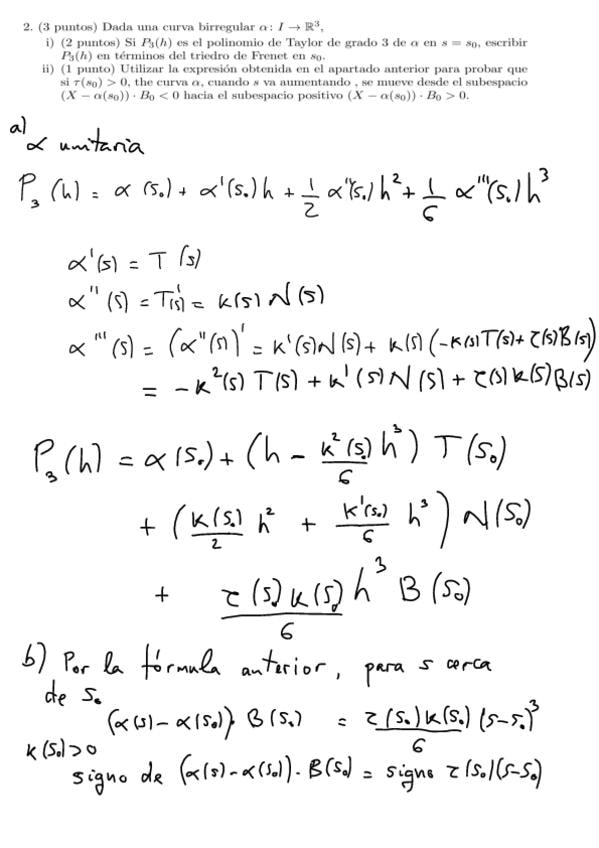 2. (3 puntos) Dada una curva birregular α: I → ℝ³,
i) (2 puntos) Si P₃(h) es el polinomio de Taylor de grado 3 de α en s = s₀, escribir
P₃(h) en términos del triedro de Frenet en s₀.
ii) (1 punto) Utilizar la expresión obtenida en el apartado anterior para probar que
si τ(s₀) > 0, the curva α, cuando s va aumentando , se mueve desde el subespacio
(X − α(s₀)) · B₀ < 0 hacia el subespacio positivo (X − α(s₀)) · B₀ > 0.
a)
α unitaria
P₃(h) = α(s₀) + α'(s₀)h + 1/2 α''(s₀)h² + 1/6 α'''(s₀)h³
α'(s) = T(s)
α''(s) = T'(s) = κ(s)N(s)
α'''(s) = (α''(s))' = κ'(s)N(s) + κ(s)(-κ(s)T(s) + τ(s)B(s))
= -κ²(s)T(s) + κ'(s)N(s) + τ(s)κ(s)B(s)
P₃(h) = α(s₀) + (h - κ²(s₀)/6 h³) T(s₀)
+ (κ(s₀)/2 h² + κ'(s₀)/6 h³) N(s₀)
+ τ(s₀)κ(s₀)/6 h³ B(s₀)
b) Por la fórmula anterior, para s cerca
de s₀
(α(s) - α(s₀))·B(s₀) = τ(s₀)κ(s₀)/6 (s-s₀)³
κ(s₀)>0
signo de (α(s)-α(s₀))·B(s₀) = signo τ(s₀)(s-s₀)